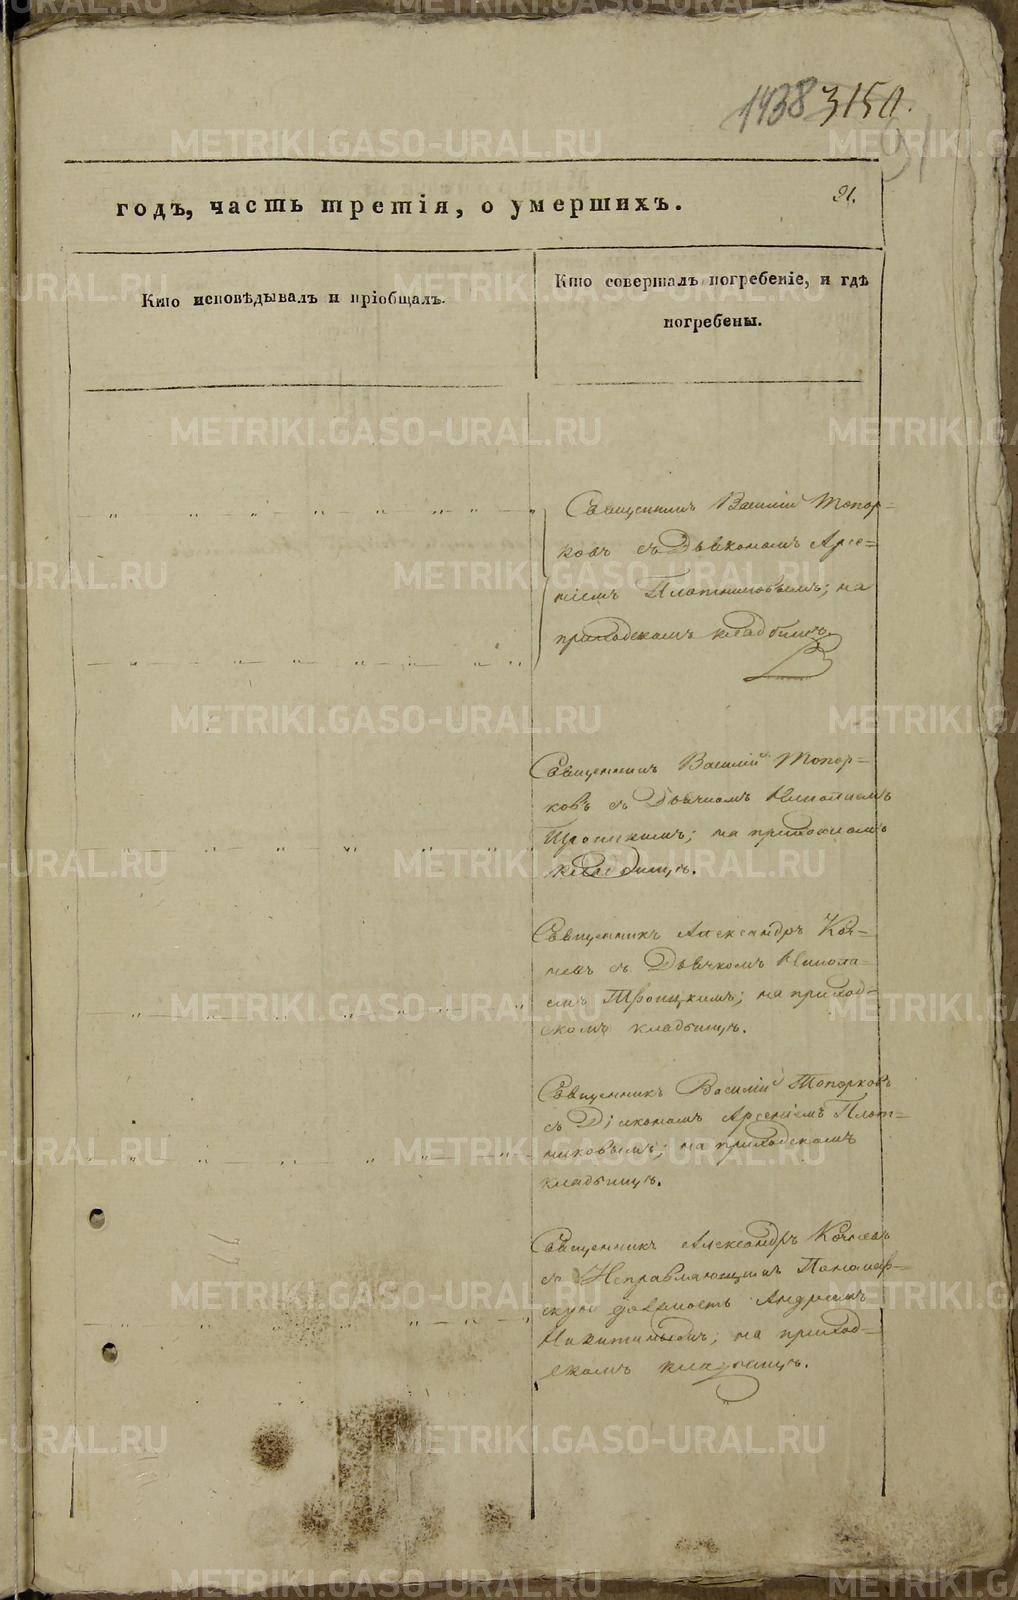 1438 3150.
91
годъ, часть третія, о умершихъ.
91.
Кто исповѣдывалъ и пріобщалъ.
Кто совершалъ погребеніе, и гдѣ
погребены.
Священникъ Василій Топор=
ковъ съ Дьякономъ Арсе=
ніемъ Плотниковымъ; на
приходскомъ кладбищѣ.
Священникъ Василій Топор=
ковъ съ Дьячкомъ Николаемъ
Троицкимъ; на приходскомъ
кладбищѣ.
Священникъ Александръ Коч=
невъ съ Дьячкомъ Никола=
емъ Троицкимъ; на приход=
скомъ кладбищѣ.
Священникъ Василій Топорковъ
съ Діякономъ Арсеніемъ Плот=
никовымъ; на приходскомъ
кладбищѣ.
Священникъ Александръ Кочневъ
съ Исправляющимъ Пономар=
скую должность Андреемъ
Никитинымъ; на приход=
скомъ кладбищѣ.
METRIKI.GASO-URAL.RU